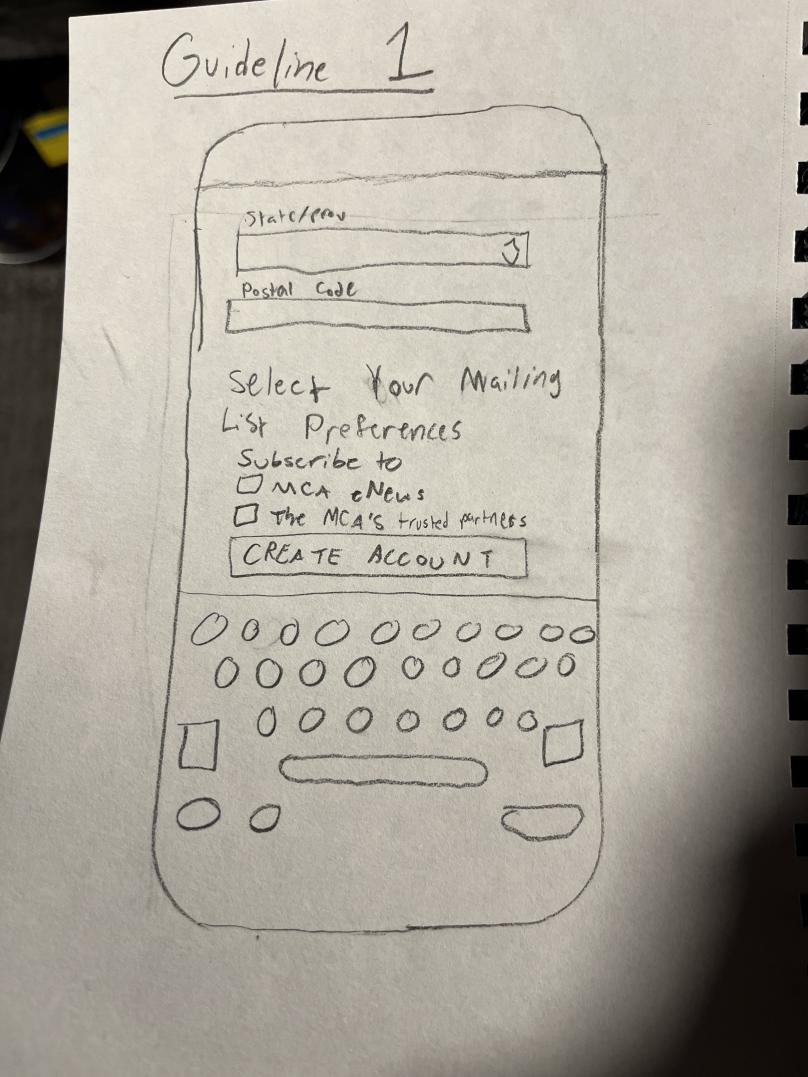 Guideline 1
State/prov
Postal Code
Select Your Mailing
List Preferences
Subscribe to
MCA eNews
The MCA's trusted partners
CREATE ACCOUNT